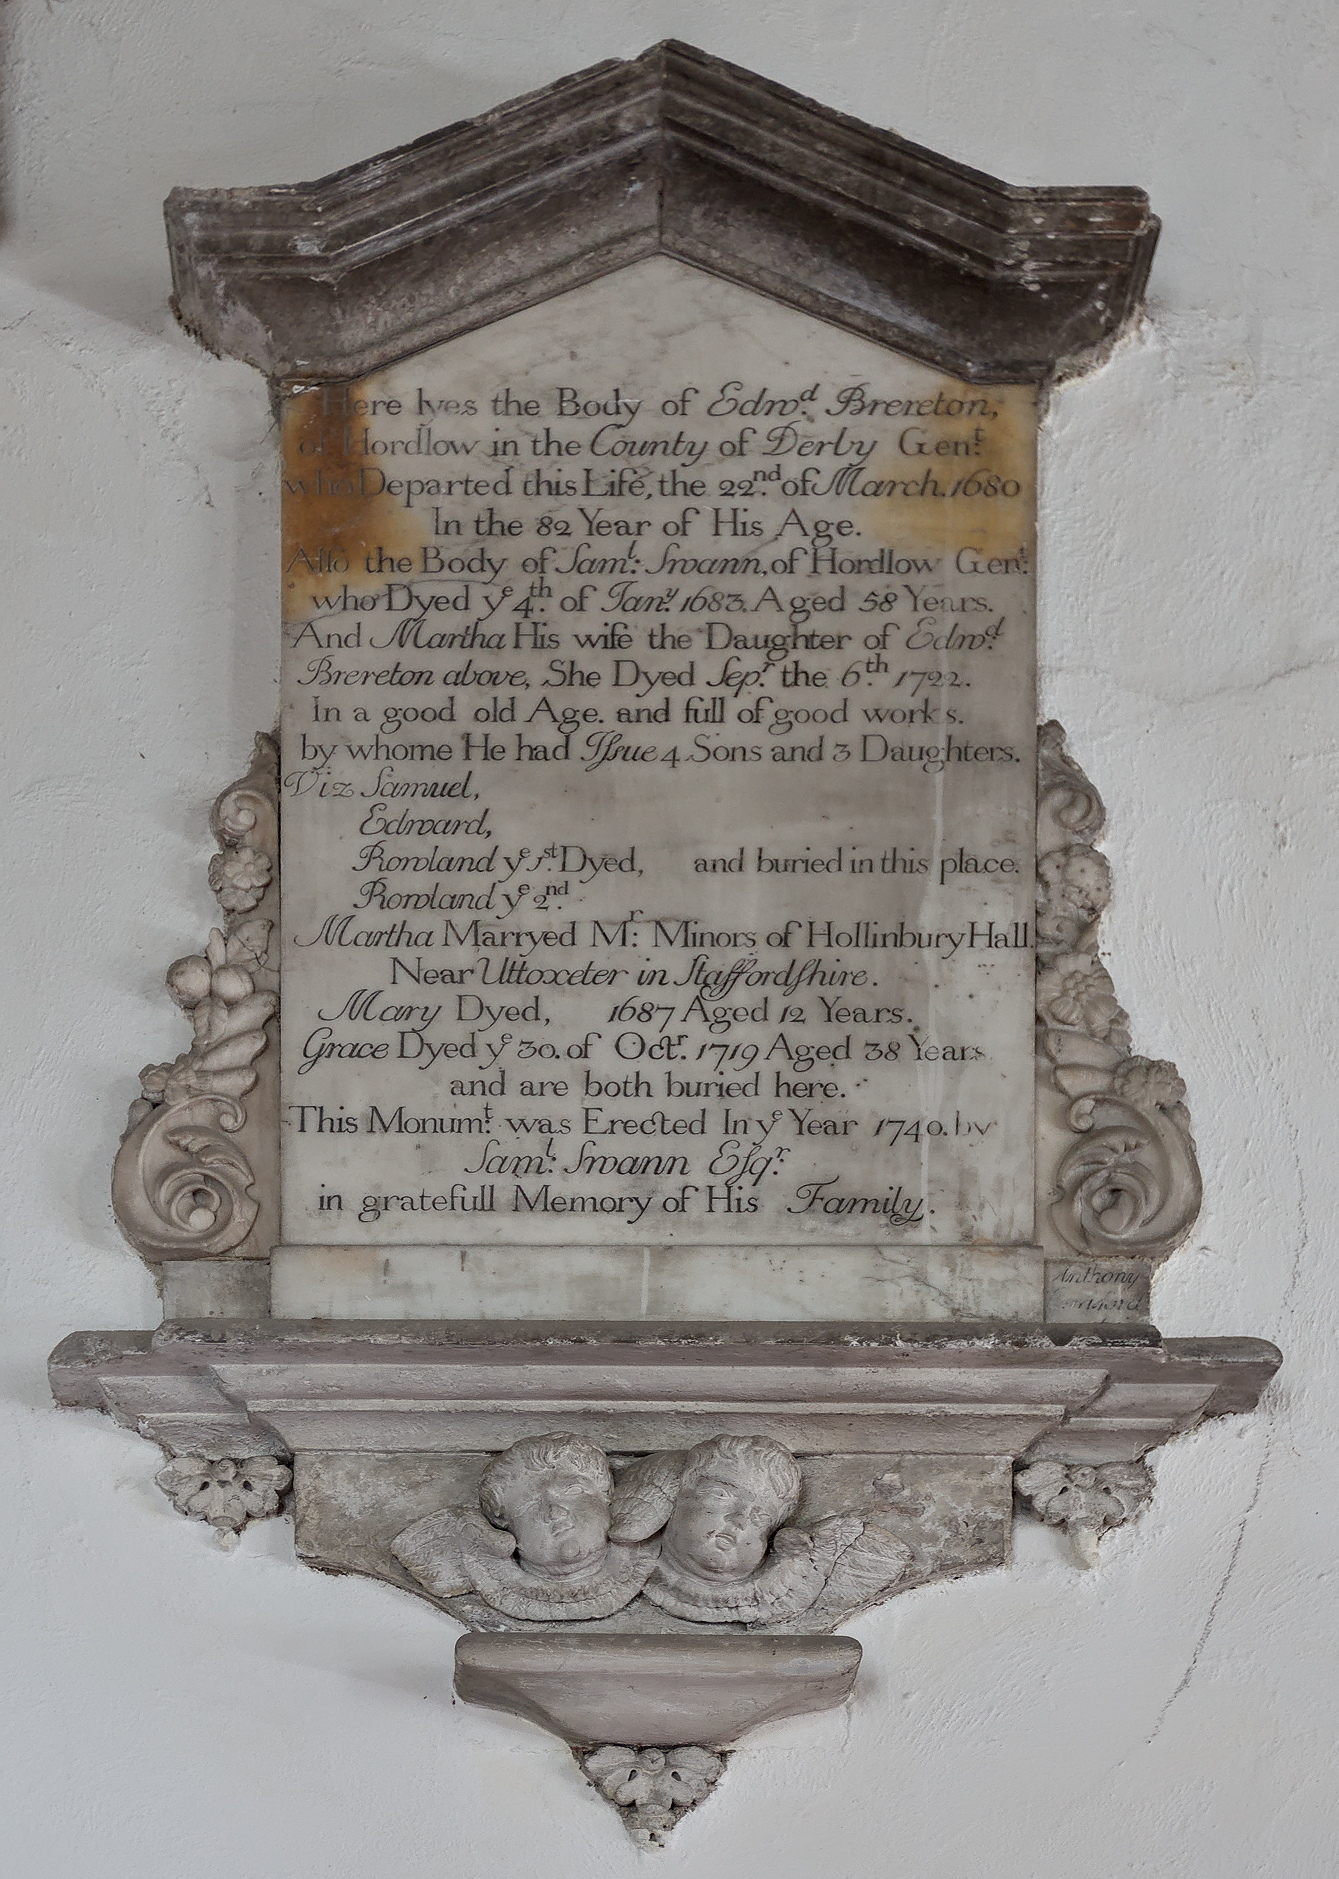 Here lyes the Body of Edwᵈ. Brereton,
of Hordlow in the County of Derby Genᵗ.
who Departed this Life, the 22ⁿᵈ. of March. 1680
In the 82 Year of His Age.
Allso the Body of Samˡ: Swann, of Hordlow Genᵗ:
who Dyed yᵉ 4ᵗʰ. of Janʸ. 1683. Aged 58 Years.
And Martha His wife the Daughter of Edwᵈ.
Brereton above, She Dyed Sepʳ. the 6ᵗʰ. 1722.
In a good old Age. and full of good works.
by whome He had Iſsue 4 Sons and 3 Daughters.
Viz Samuel,
Edward,
Rowland yᵉ 1ˢᵗ. Dyed, and buried in this place.
Rowland yᵉ 2ⁿᵈ.
Martha Marryed Mʳ: Minors of Hollinbury Hall.
Near Uttoxeter in Staffordſhire.
Mary Dyed, 1687 Aged 12 Years.
Grace Dyed yᵉ 30. of Octʳ. 1719 Aged 38 Years
and are both buried here.
This Monumᵗ: was Erected In yᵉ Year 1740. by
Samˡ: Swann Eſqʳ:
in gratefull Memory of His Family.
Anthony